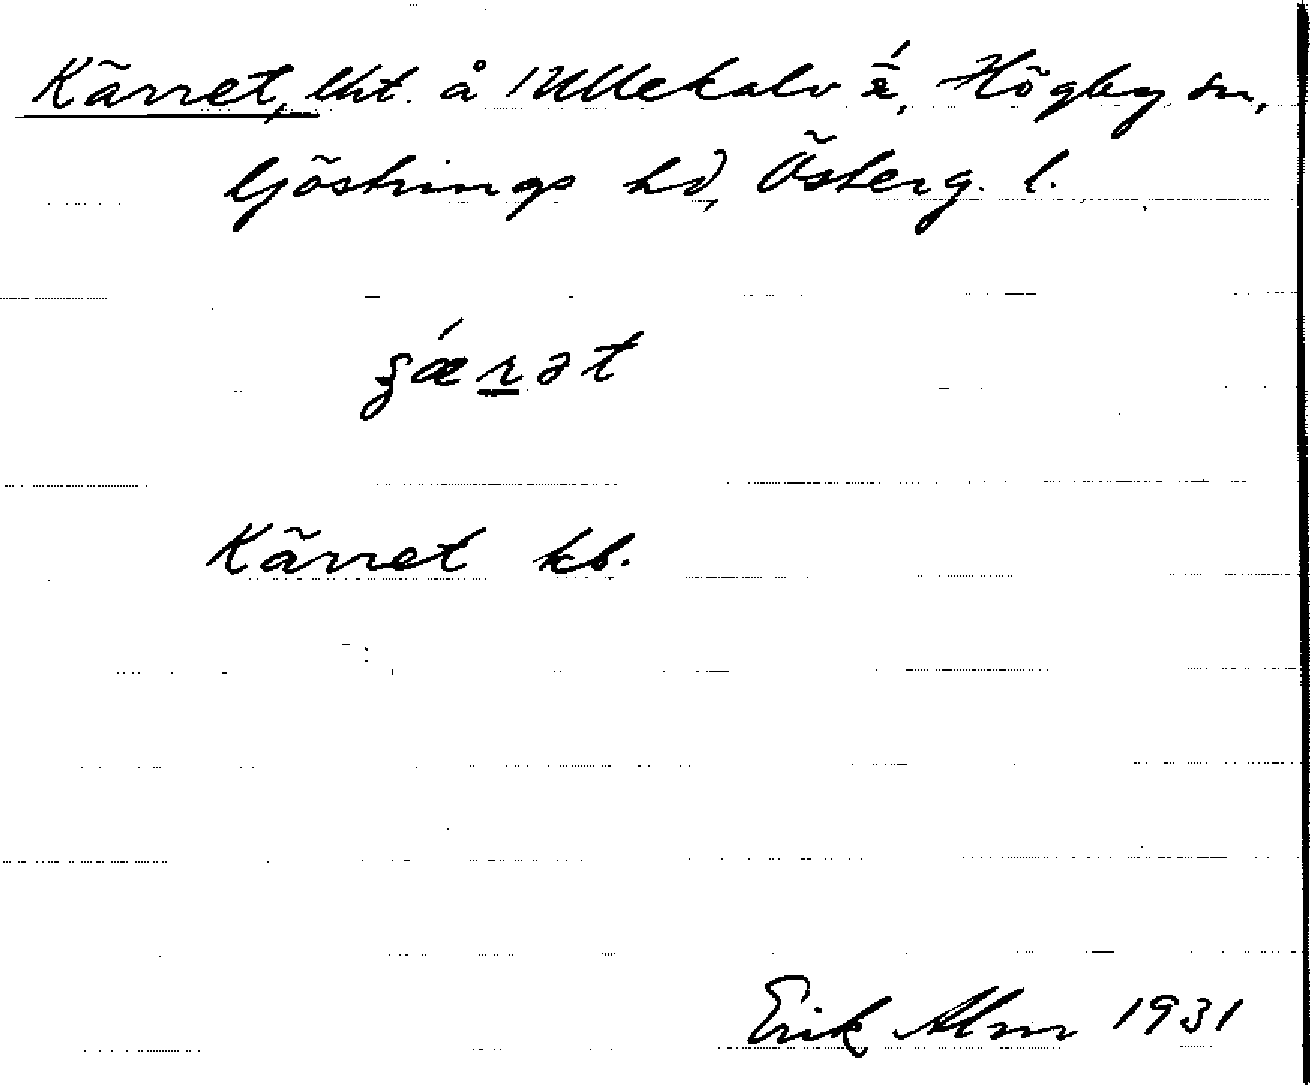 Kärret, lht. å Ullekalv 1/2, Högby sn,
Göstrings hd, Österg. l.
Kärret kb.
Erik Alm 1931